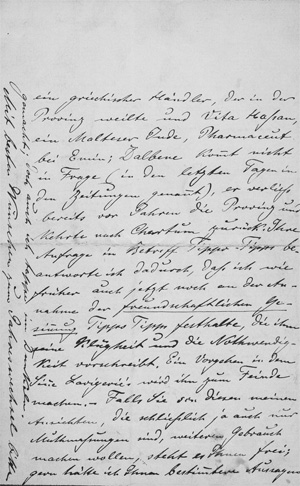 ein griechischer Händler, der in der
Provinz weilte und Vita Hassan,
ein Malteser Jude, Pharmaceut
bei Emin; Dalbene kommt nicht
in Frage (in den letzten Tagen in
den Zeitungen genannt), er verließ
bereits vor Jahren die Provinz und
kehrte nach Chartum zurück. Ihre
Anfrage in Betreff Tippo-Tipps be-
antworte ich dadurch, dass ich wie
früher auch jetzt noch an der An-
nahme der freundschaftlichen Ge-
sinnung Tippo Tipps festhalte, die ihm
seine Klugheit und die Nothwendig-
keit vorschreibt. Ein Vorgehen in dem
Sinne Lavigeries wird ihn zum Feinde
machen. – Falls Sie von diesen meinen
Ansichten, die schließlich ja auch nur
Muthmaßungen sind, weiteren Gebrauch
machen wollen, steht es Ihnen frei;
gern hätte ich Ihnen bestimmtere Aussagen
gemacht;
Mit besten Wünschen zum Jahreswechsel